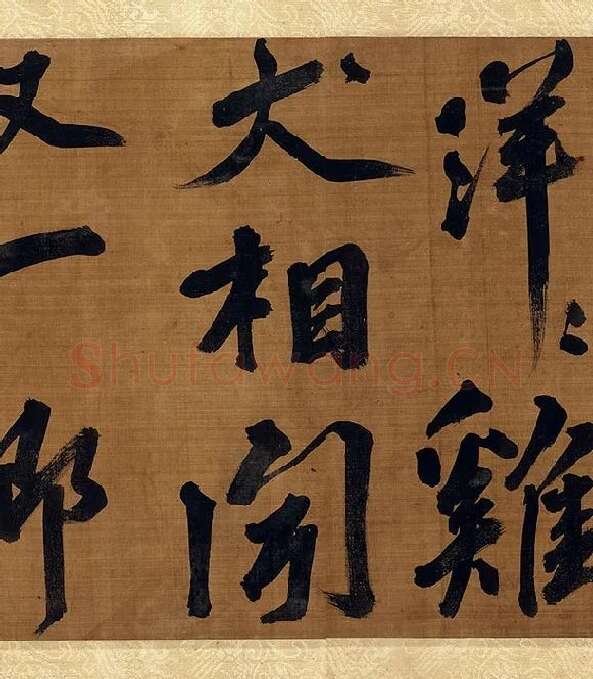 洋〻雞
犬相聞
又一邨
Shufawang.CN